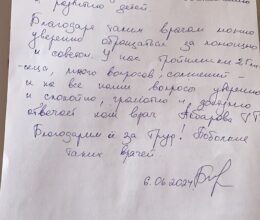 и развитию детей
Благодаря таким врачам можно
уверенно обращаться за помощью
и советом. У нас тройняшки 2 г
много вопросов, сомнений -
и на все наши вопросы уверенно
и спокойно, грамотно и
отвечает нам врач
Благодарим её за труд! Побольше
таких врачей
6.06.2024